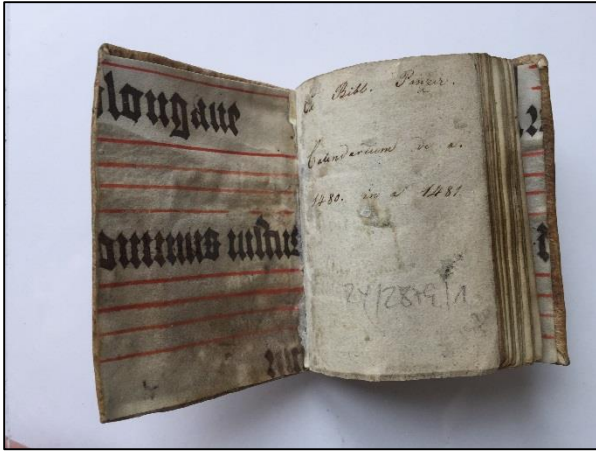 longaue
dominus iustus
Ex Bibl. Panzer.
Calendarium de a.
1480. in a 1481